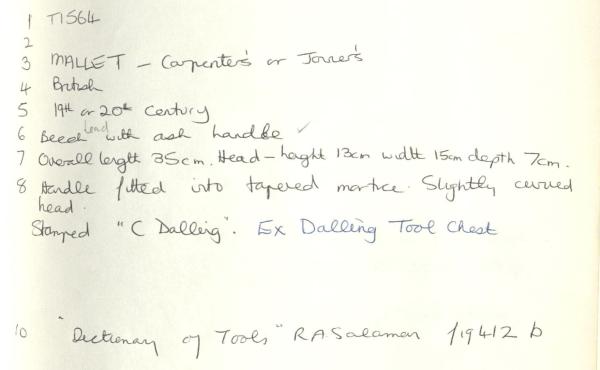 1 T1564
2
3 MALLET - Carpenter's or Joiner's
4 British
5 19th or 20th Century
6 Beech head with ash handle ✓
7 Overall length 35cm. Head - height 13cm width 15cm depth 7cm.
8 Handle fitted into tapered mortice. Slightly curved
head.
Stamped "C Dalling". Ex Dalling Tool Chest
10 "Dictionary of Tools" R A Salaman